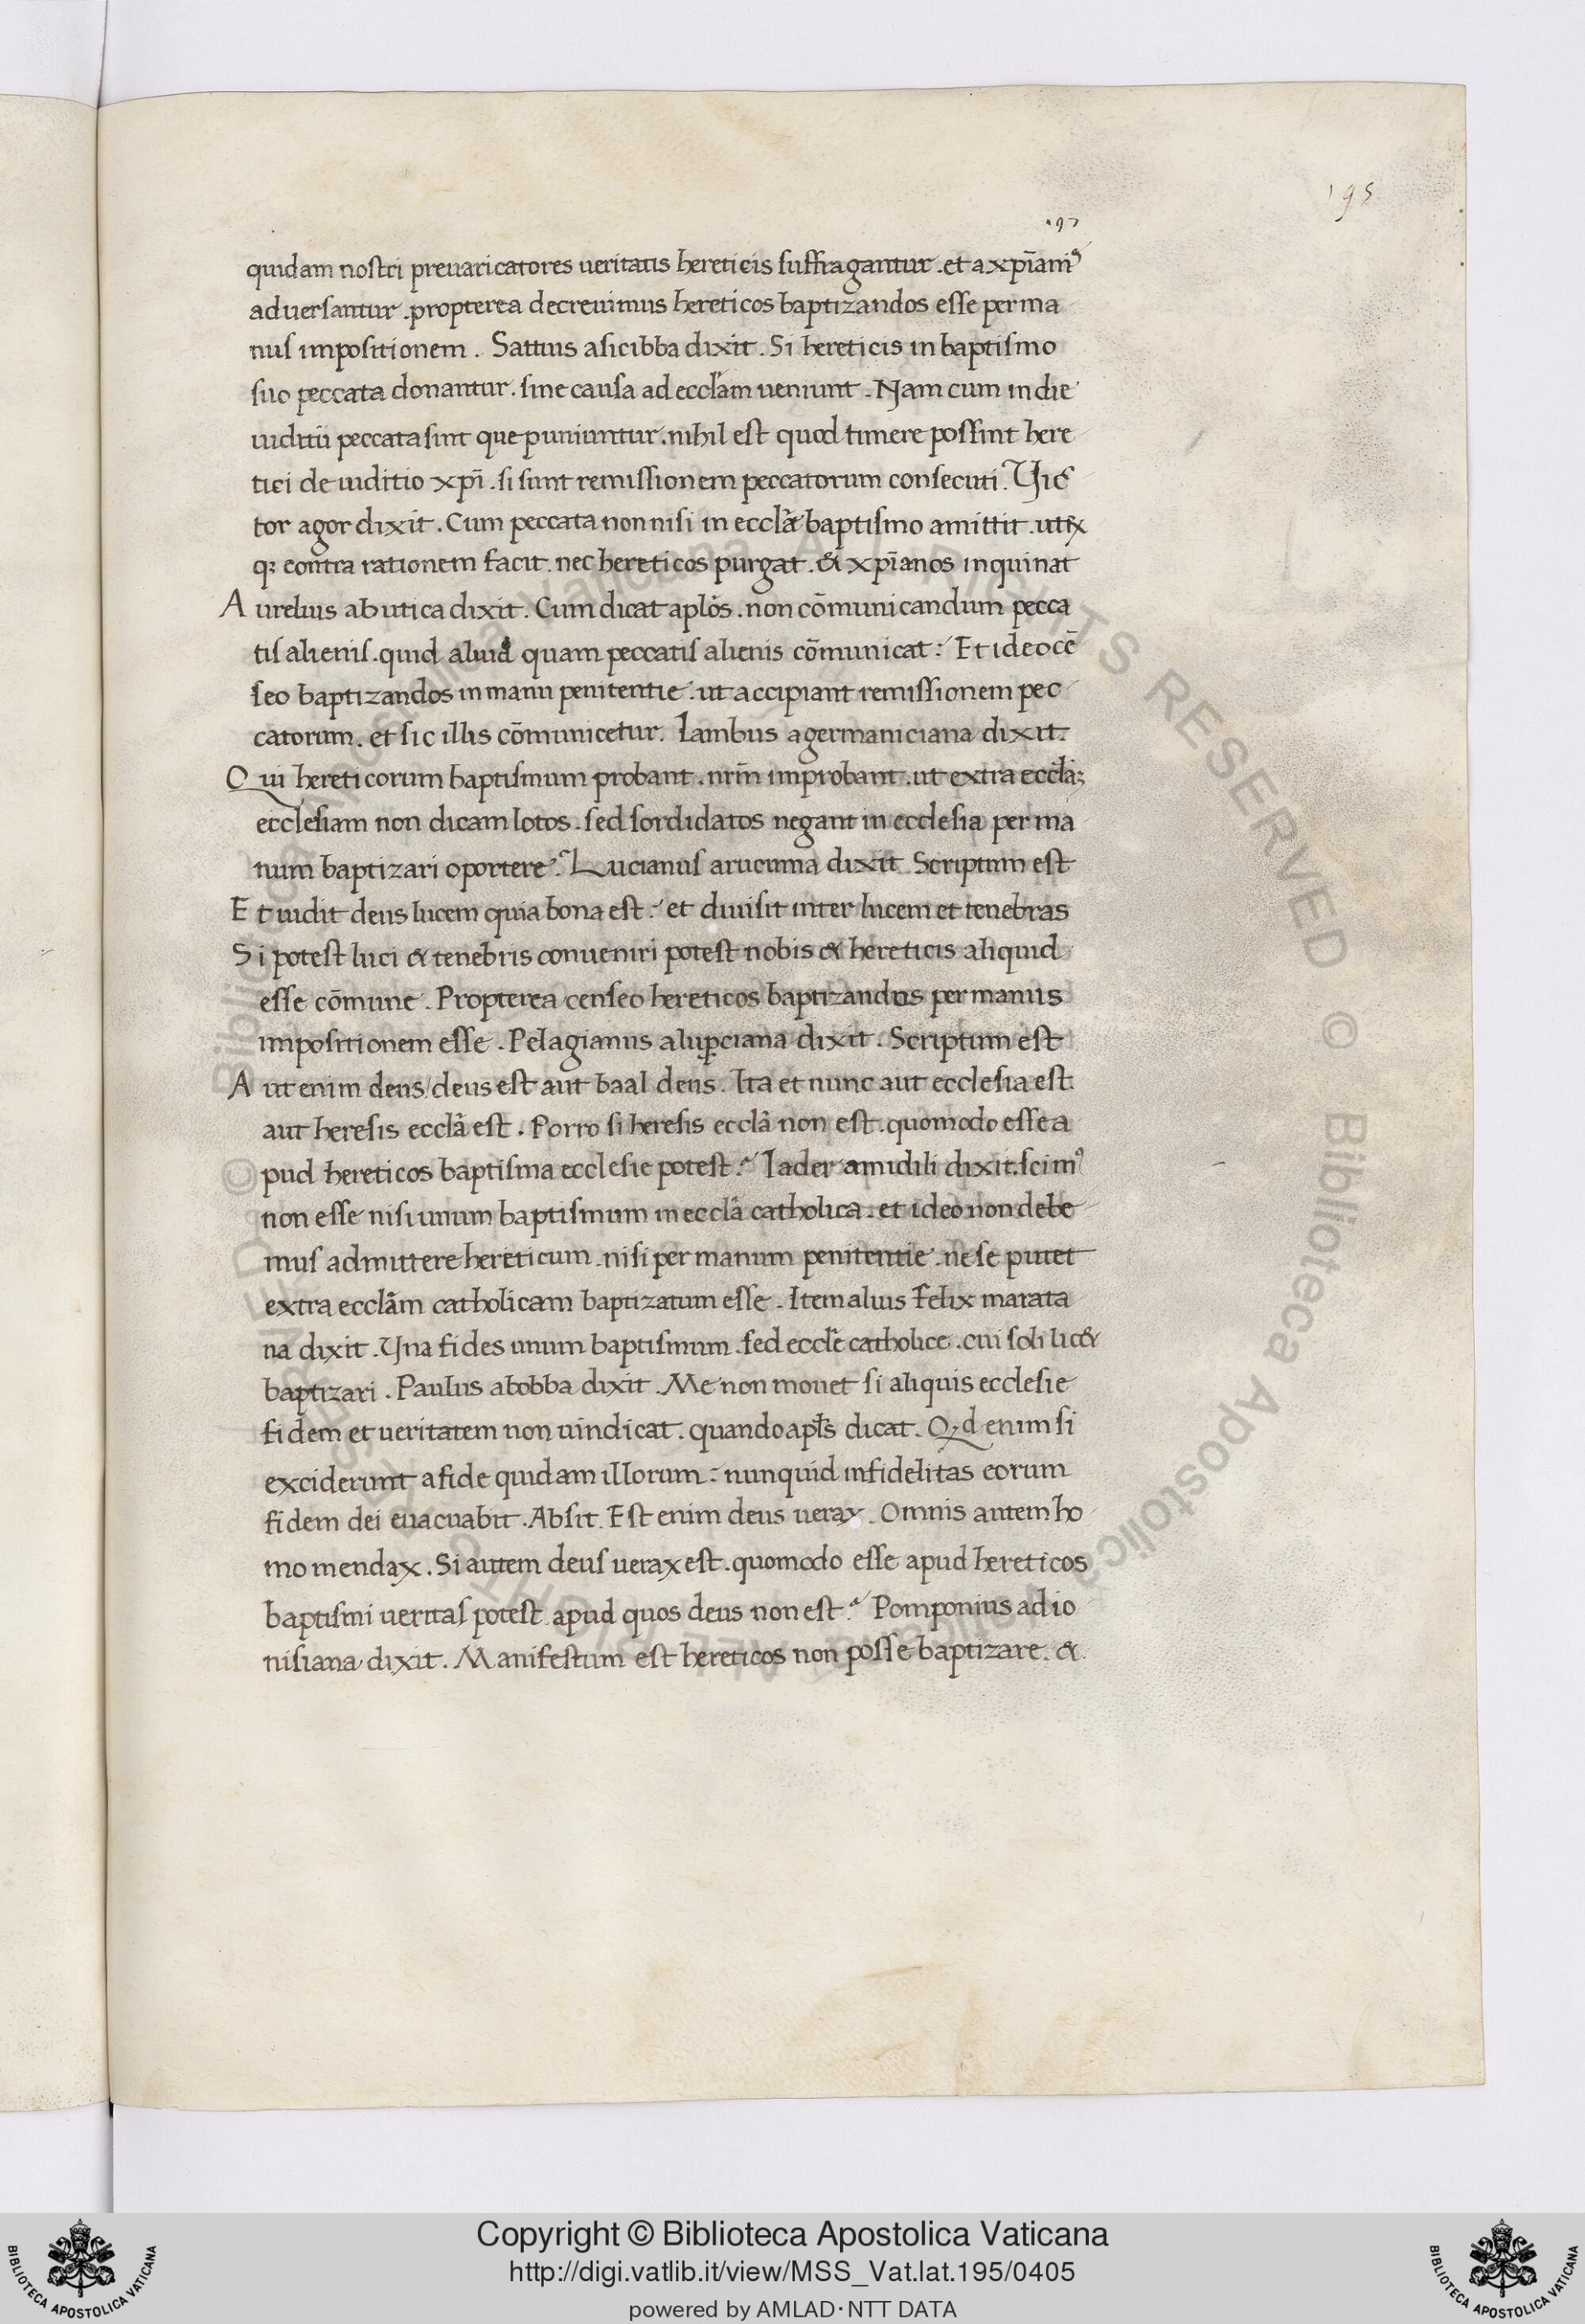 195
197
quidam nostri prevaricatores veritatis hereticis suffragantur. et a xp̄ianis
adversantur. propterea decrevimus hereticos baptizandos esse per ma
nus impositionem. Sattius asicibba dixit. Si hereticis in baptismo
suo peccata donantur. sine causa ad eccl̄am veniunt. Nam cum in die
iuditii peccata sint que puniuntur. nihil est quod timere possint here
tici de iuditio xp̄i. si sunt remissionem peccatorum consecuti. Vic
tor agor dixit. Cum peccata non nisi in eccl̄ae baptismo amittit.
q; contra rationem facit. nec hereticos purgat. & xp̄ianos inquinat
Aurelius ab utica dixit. Cum dicat apl̄os. non cōmunicandum pecca
tis alienis. quid aliud quam peccatis alienis cōmunicat? Et ideo cē
seo baptizandos in manu penitentie. ut accipiant remissionem pec
catorum. et sic illis cōmunicetur. Iambus a germaniciana dixit.
Qui hereticorum baptismum probant. nr̄m improbant. ut extra eccl̄a;
ecclesiam non dicam lotos. sed sordidatos negant in ecclesia per ma
num baptizari oportere. Lucianus arucuma dixit Scriptum est
Et vidit deus lucem quia bona est: et divisit inter lucem et tenebras
Si potest luci & tenebris conveniri potest nobis & hereticis aliquid
esse cōmune. Propterea censeo hereticos baptizandos per manus
impositionem esse. Pelagianus a luꝑciana dixit. Scriptum est
Aut enim deus/deus est aut baal deus. Ita et nunc aut ecclesia est
aut heresis eccl̄a est. Porro si heresis eccl̄a non est. quomodo esse a
pud hereticos baptisma ecclesie potest? Iader amidili dixit. scim᾽
non esse nisi unum baptismum in eccl̄a catholica. et ideo non debe
mus admittere hereticum. nisi per manum penitentie. ne se putet
extra eccl̄am catholicam baptizatum esse. Item alius Felix marata
na dixit. Una fides unum baptismum. sed eccl̄e catholice. cui soli lic&
baptizari. Paulus abobba dixit. Me non movet si aliquis ecclesie
fidem et veritatem non vindicat. quando apl̄s dicat. Qd enim si
exciderunt a fide quidam illorum: nunquid infidelitas eorum
fidem dei evacuabit. Absit. Est enim deus verax. Omnis autem ho
mo mendax. Si autem deus verax est. quomodo esse apud hereticos
baptismi veritas potest. apud quos deus non est? Pomponius adio
nisiana dixit. Manifestum est hereticos non posse baptizare. &
© Biblioteca Apostolica Vaticana ALL RIGHTS RESERVED
© Biblioteca Apostolica Vaticana ALL RIGHTS RESERVED
Copyright © Biblioteca Apostolica Vaticana
http://digi.vatlib.it/view/MSS_Vat.lat.195/0405
powered by AMLAD·NTT DATA
BIBLIOTECA APOSTOLICA VATICANA
BIBLIOTECA APOSTOLICA VATICANA